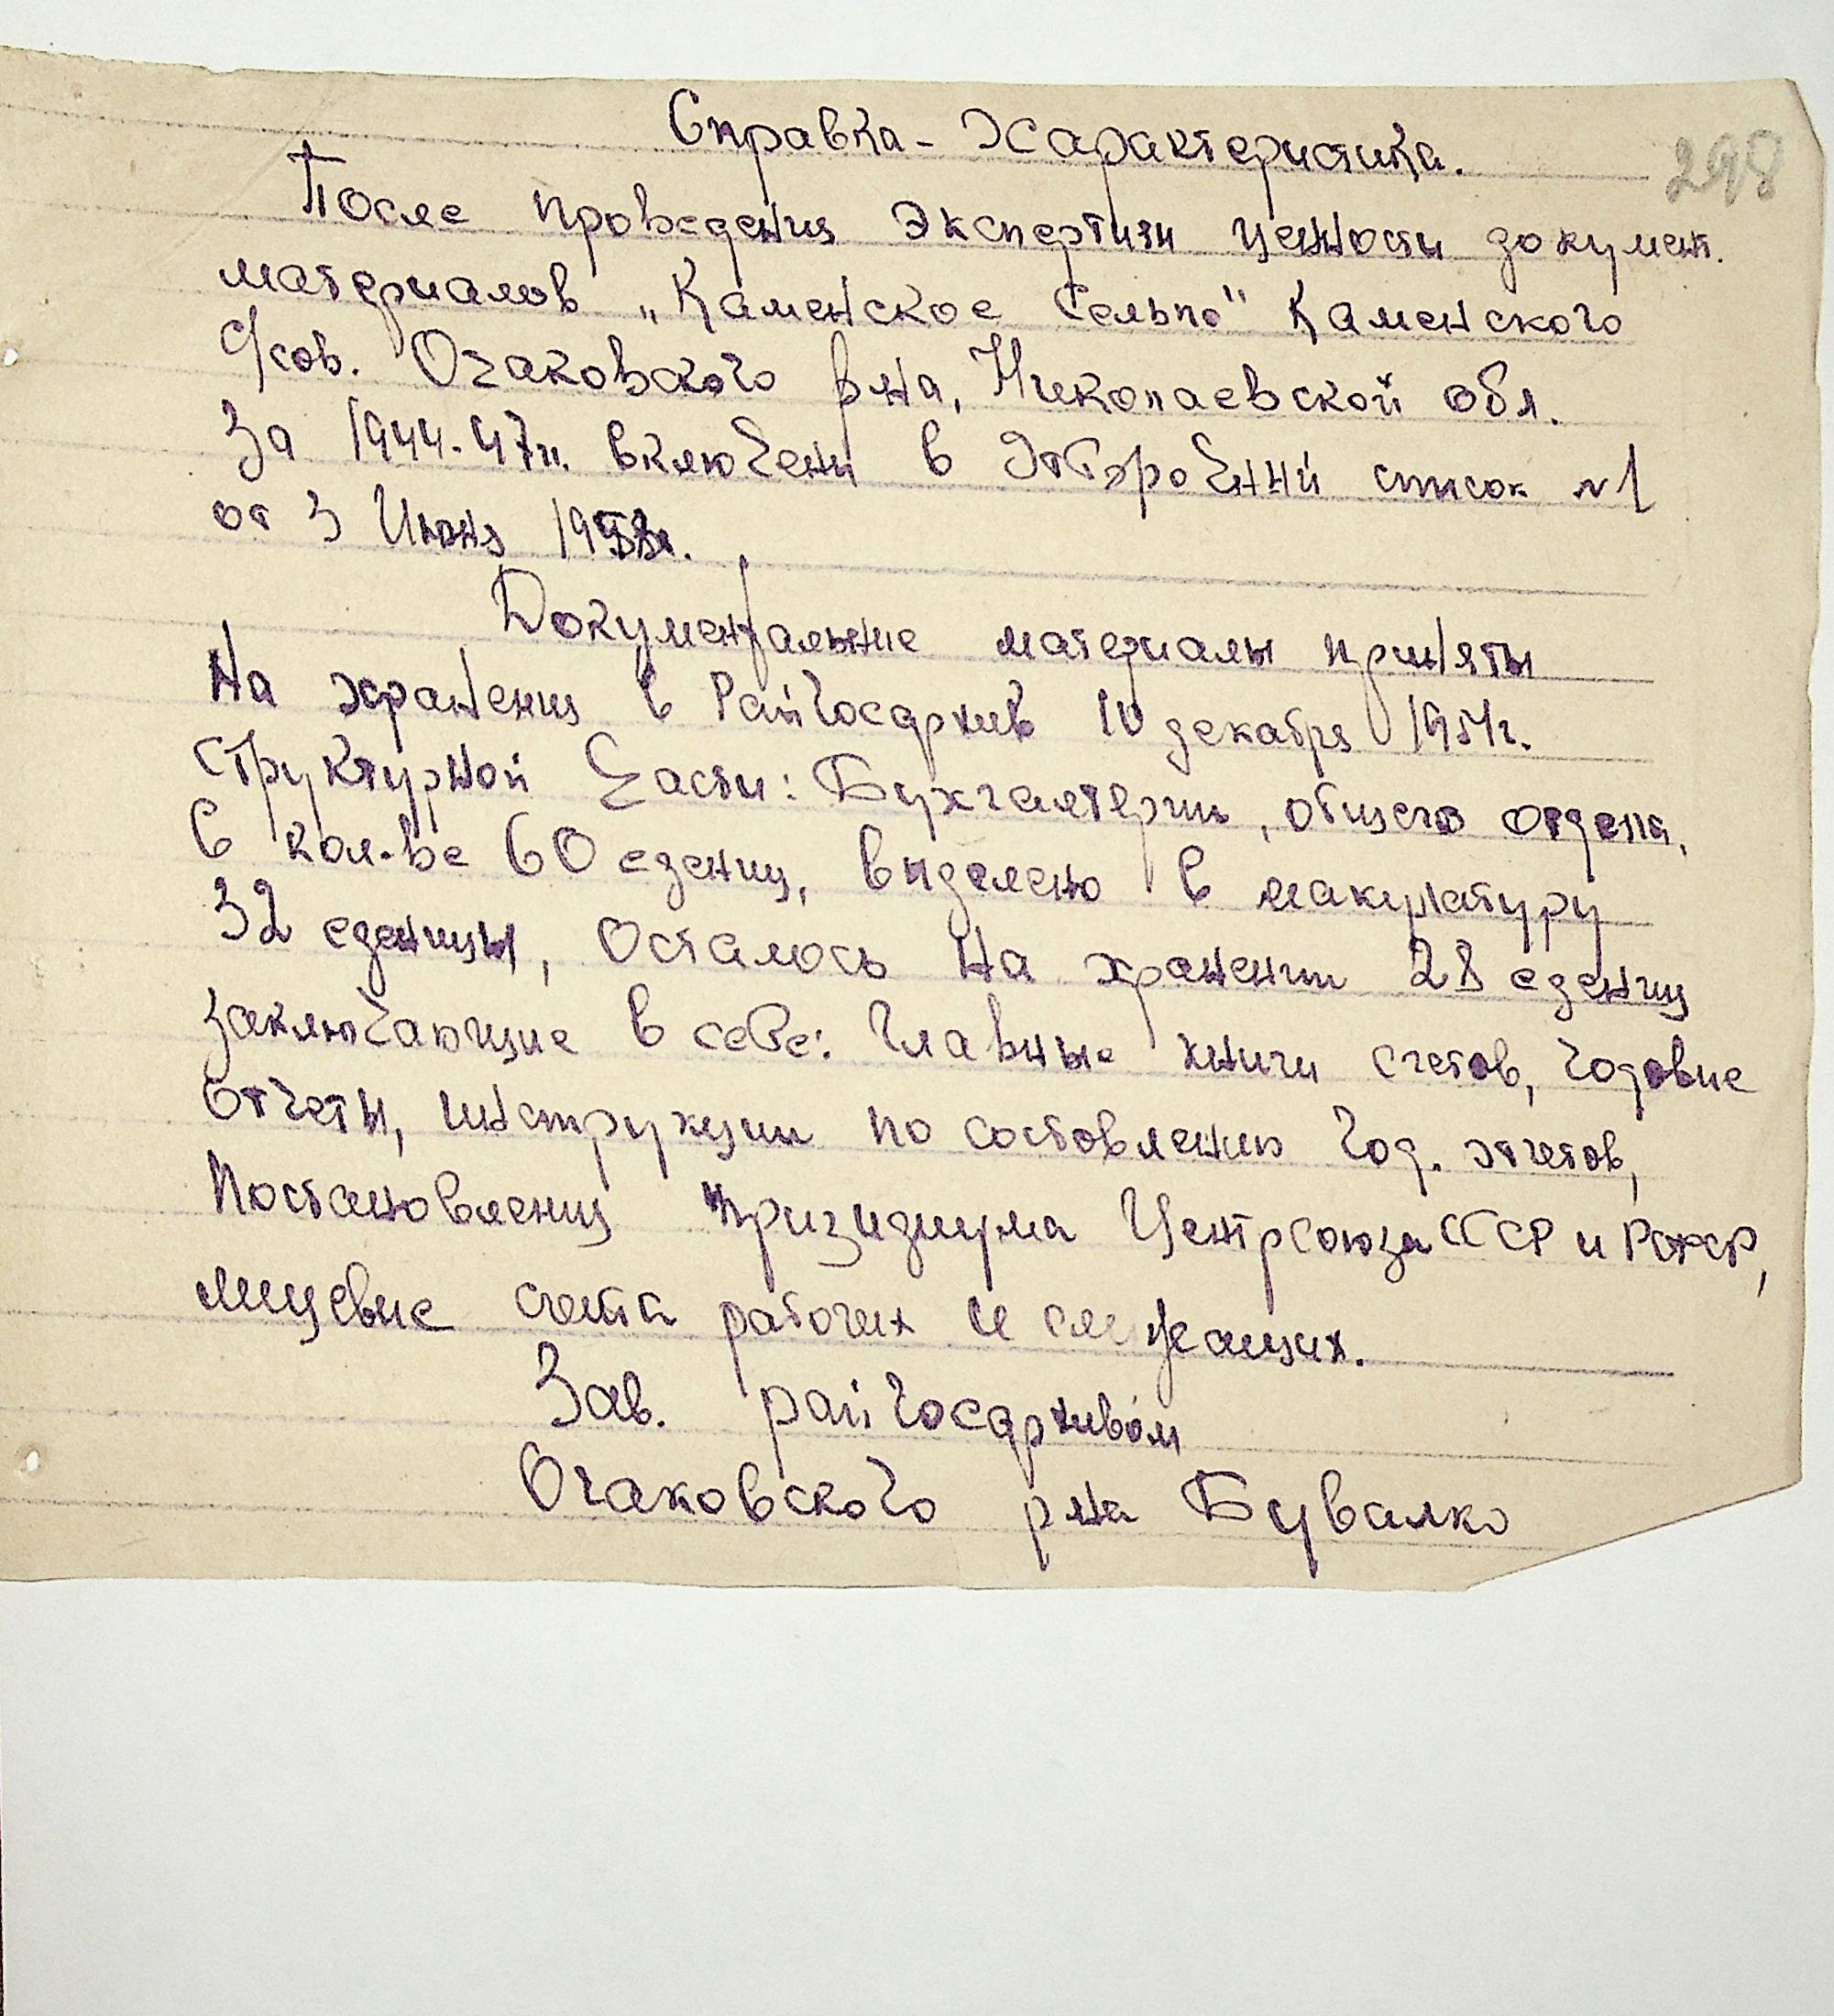 298
Справка-Характеристика.
После проведения экспертизи ценности документ.
материалов „Каменское Сельпо" Каменского
с/сов. Очаковского р-на, Николаевской обл.
За 1944-47гг. включени в Отброчний список №1
от 3 Июня 1958г.
Документальние материалы приняты
на хранения в Райгосархив 10 декабря 1951г.
структурной части: Бухгалтерии, общего отдела,
в кол-ве 60 едениц, виделено в макулатуру
32 еденицы, осталось на хранении 28 едениц
заключающие в себе: Главные книги счетов, годовие
отчеты, инструкции по состовлению год. отчетов,
Постановления призидиума Центрсоюза СССР и РСФСР,
лицевие счета рабочих и служащих.
Зав. райгосархивом
Очаковского р-на Бувалко